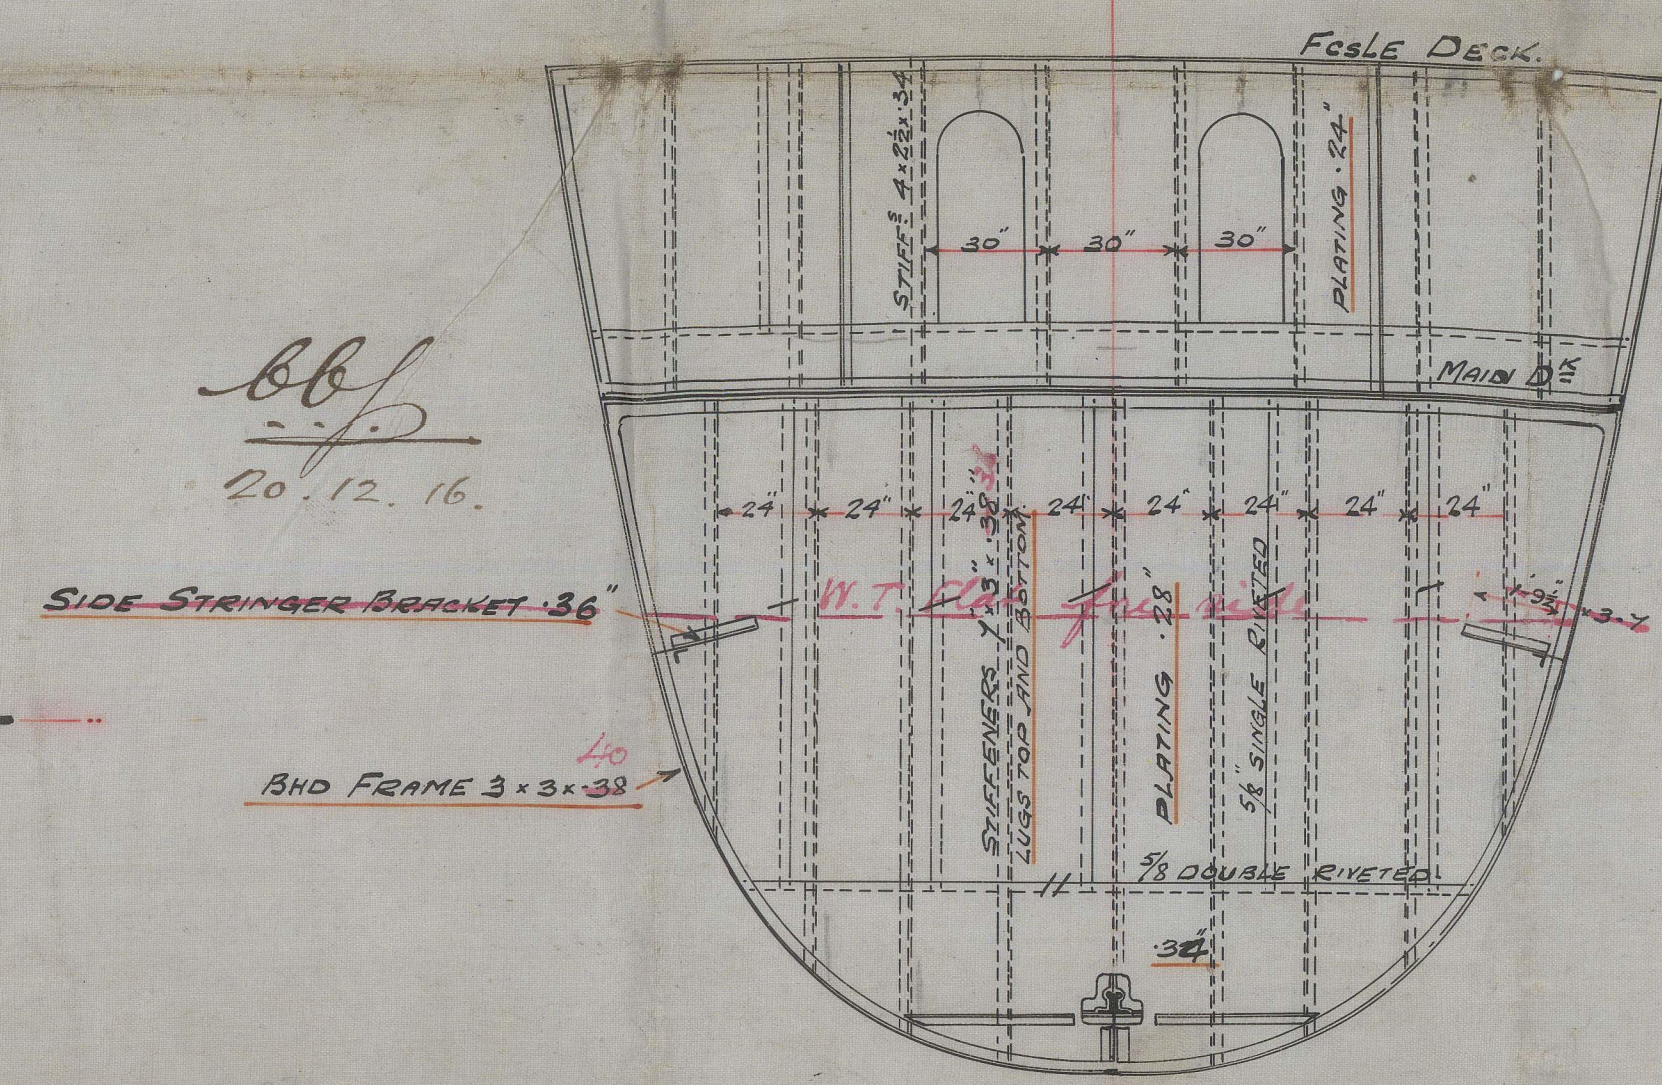 FCSLE DECK.
STIFFS 4 × 2½ × .34
PLATING .24"
30" 30" 30"
MAIN DK
20.12.16.
24" 24" 24" 24" 24" 24" 24" 24"
SIDE STRINGER BRACKET .36"
W.T. Flat fore side
× 3.4
STIFFENERS 7" × 3" × .38" 36
LUGS TOP AND BOTTOM
PLATING .28"
5/8" SINGLE RIVETED
40
BHD FRAME 3 × 3 × .38
5/8 DOUBLE RIVETED.